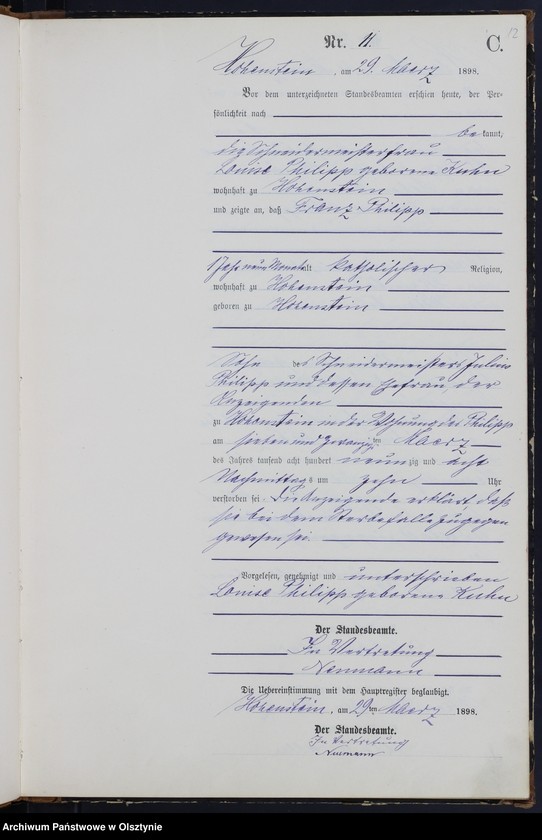 12
Nr. 11. C.
Hohenstein, am 29. Maerz 1898.
Vor dem unterzeichneten Standesbeamten erschien heute, der Per-
sönlichkeit nach
bekannt,
die Schneidermeisterfrau
Louise Philipp geborene Kuhn
wohnhaft zu Hohenstein
und zeigte an, daß Franz Philipp
1 Jahr neun Monate alt katholischer Religion,
wohnhaft zu Hohenstein
geboren zu Hohenstein
Sohn des Schneidermeisters Julius
Philipp und dessen Ehefrau, der
Anzeigenden
zu Hohenstein in der Wohnung des Philipp
am sieben und zwanzigsten Maerz
des Jahres tausend acht hundert neunzig und acht
Nachmittags um zehn Uhr
verstorben sei. Die Anzeigende erklärt, daß
sie bei dem Sterbefalle zugegen
gewesen sei.
Vorgelesen, genehmigt und unterschrieben
Louise Philipp geborene Kuhn
Der Standesbeamte.
In Vertretung
Neumann
Die Uebereinstimmung mit dem Hauptregister beglaubigt.
Hohenstein, am 29ten Maerz 1898.
Der Standesbeamte.
In Vertretung
Neumann
Archiwum Państwowe w Olsztynie